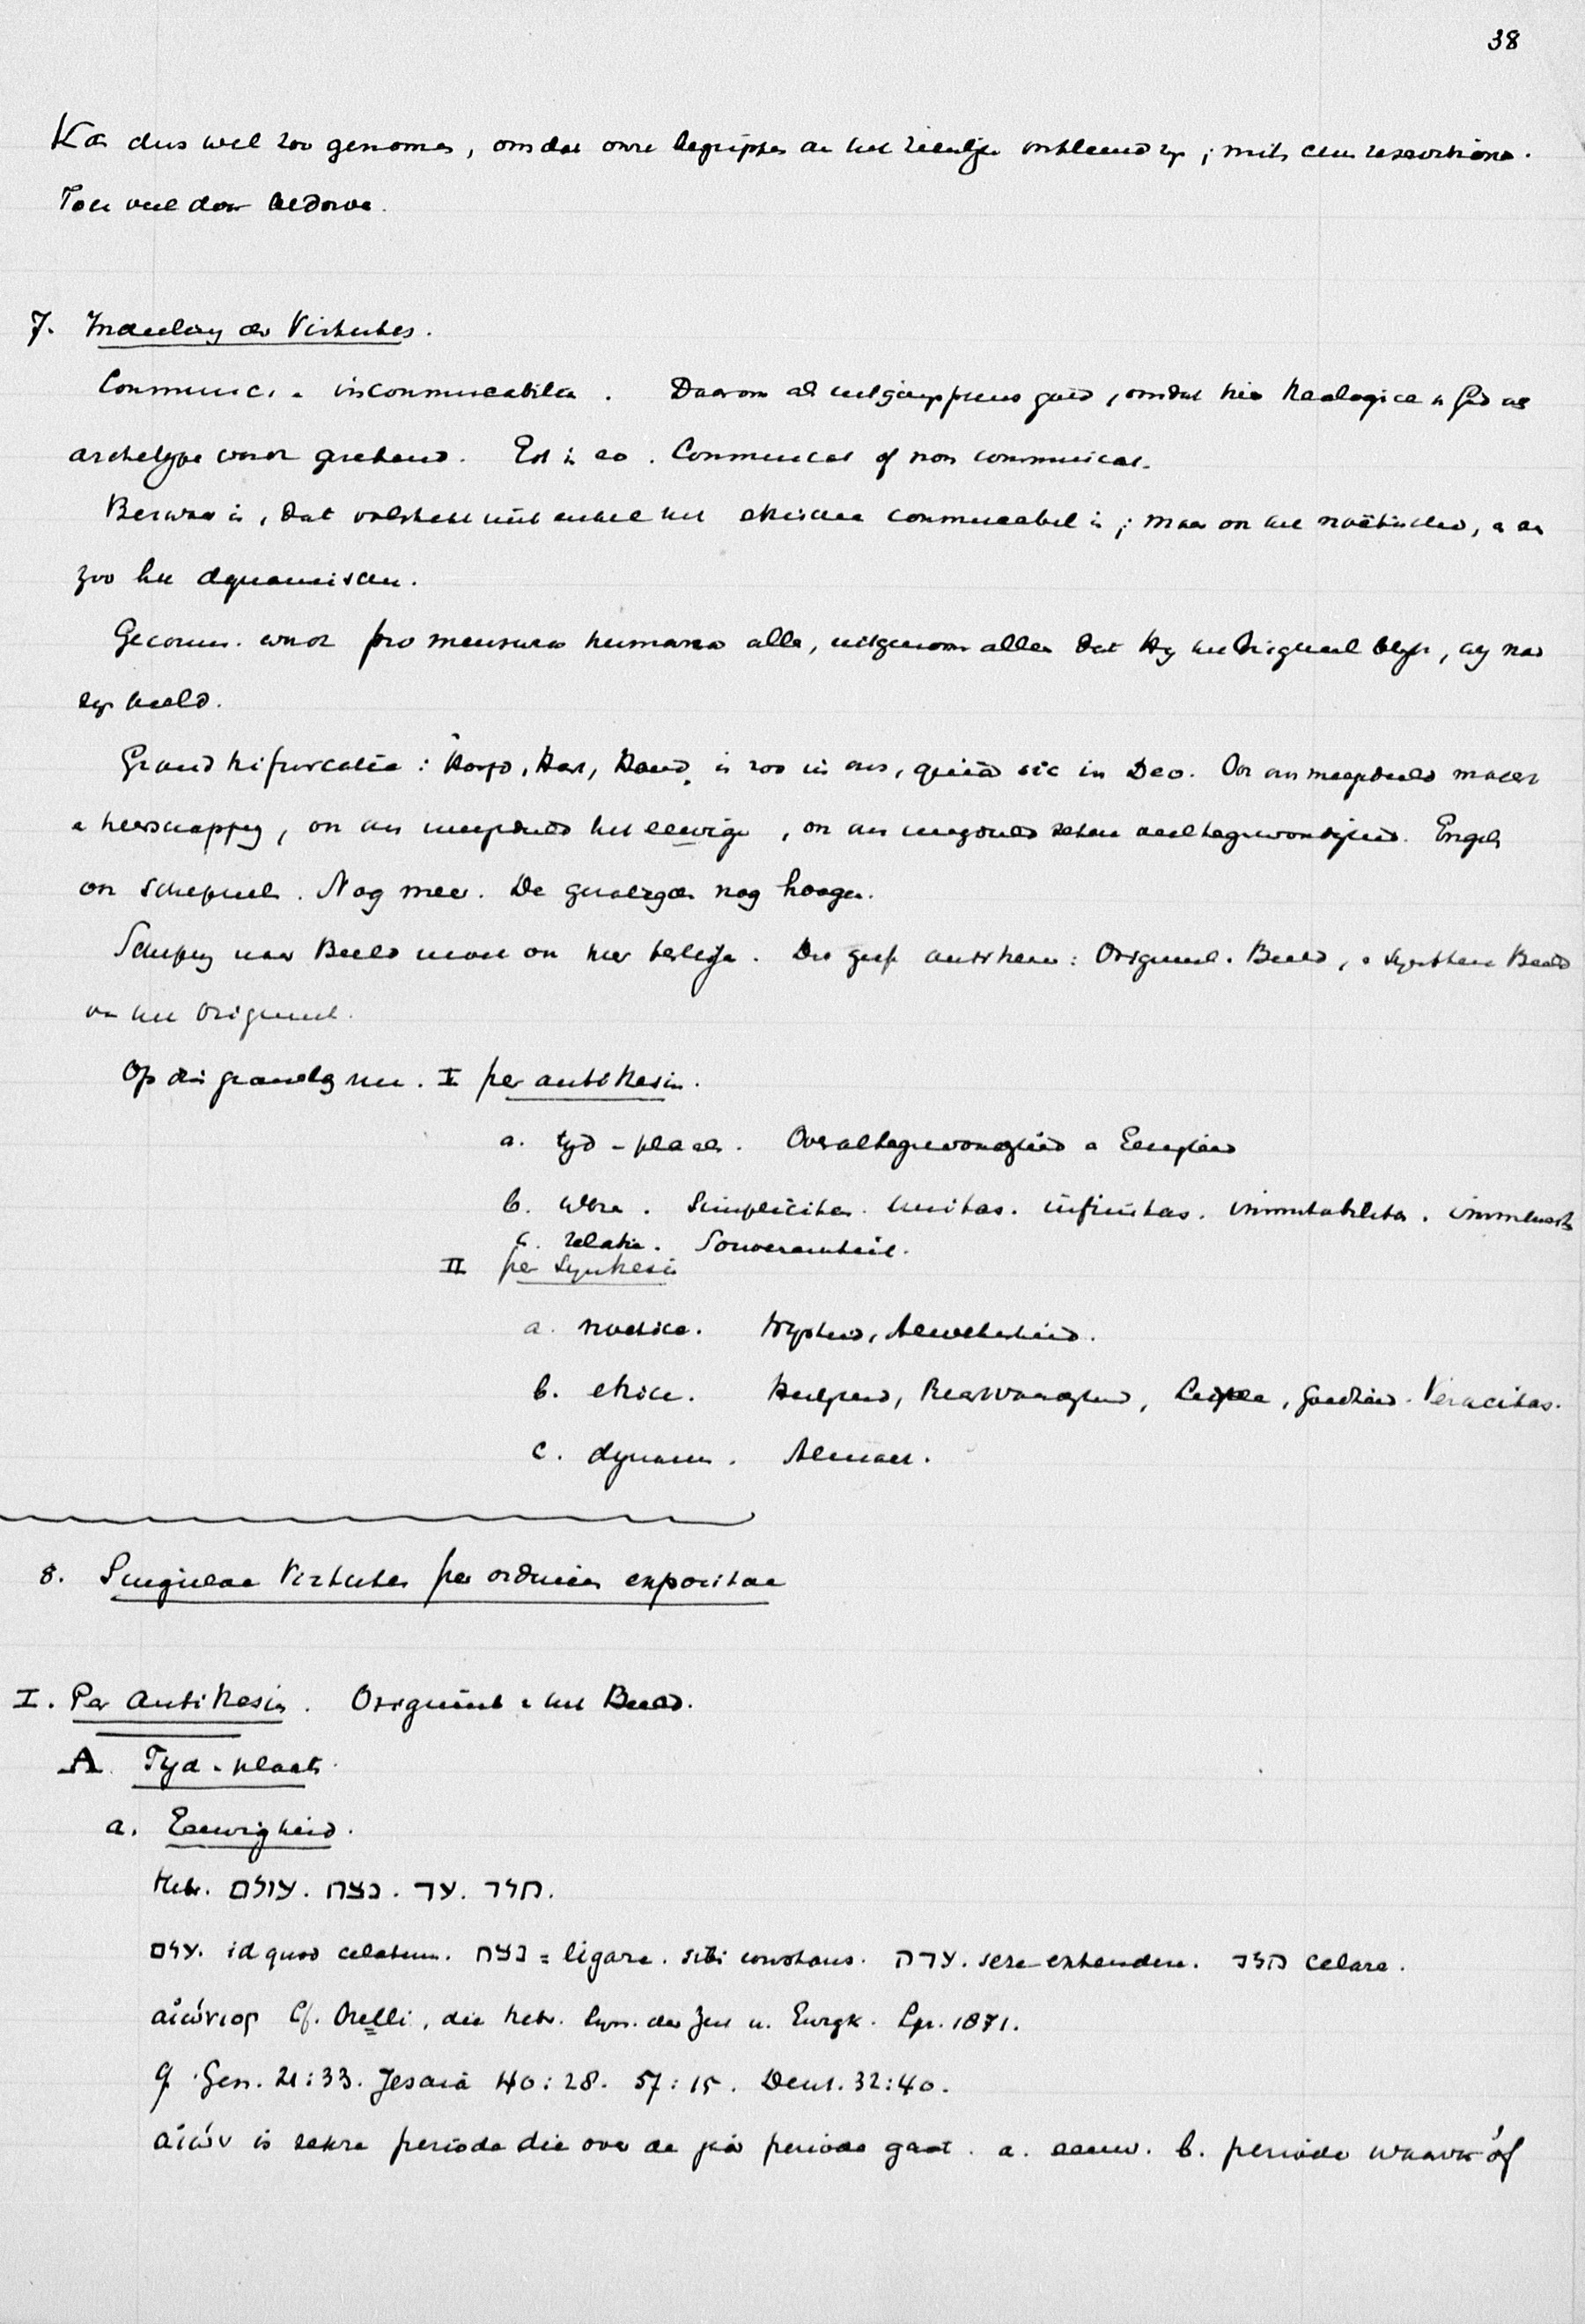 38
Kan dus wel zoo genomen, omdat onze begrippen aan het zienlijke ontleend zijn; mits cum restrictione.
Toch veel door bedorven.
7. Indeeling der Virtutes.
Communic. en incommunicabilia. Daarom als uitgangspunt goed, omdat hier theologice in God als
archetype wordt gerekend. Est in eo. Communicat of non communicat.
Bezwaar is, dat volstrekt niet enkel het ethische communicabel is; maar ook het noëtische, en even
zoo het dynamische.
Gecomm. wordt pro mensura humana alle, uitgenomen alleen dat Hij het Origineel blijft, wij naar
zijn beeld.
Grond trifurcatie: Hoofd, Hart, Hand, is zoo in ons, quia sic in Deo. Ook ons meegedeeld macht
en heerschappij, ook ons meegedeeld het eeuwige, ook ons meegedeeld zekere alomtegenwoordigheid. Engel
ook schepsel. Nog meer. De gezaligden nog hooger.
Schepping naar Beeld moet ook hier beslissen. Dit geeft antithese: Origineel. Beeld, en synthese Beeld
van het Origineel.
Op dien grondslag nu. I per antithesin.
a. tijd - plaats. Overaltegenwoordigheid en Eeuwigheid
b. wezen. Simplicitas. Unitas. infinitas. immutabilitas. immensitas
c. relatie. Souvereiniteit.
II per Synthesin
a. noetice. Wijsheid, Alwetendheid.
b. ethice. Heiligheid, Rechtvaardigheid, Liefde, Goedheid. Veracitas.
c. dynam. Almacht.
8. Singulae Virtutes per ordinem expositae
I. Per Antithesin. Origineel en het Beeld.
A. Tijd - plaats.
a. Eeuwigheid.
Hebr. עולם . נצח . עד . חלד.
עלם. id quod celatum. נצח = ligare. sibi constans. עדה. sese extendere. חלד celare.
αἰώνιος Cf. Orelli, die hebr. Syn. der Zeit u. Ewigk. Lpz. 1871.
Cf. Gen. 21:33. Jesaia 40:28. 57:15. Deut. 32:40.
αἰών is zekere periode die over de periode gaat. a. eeuw. b. periode waarvan óf